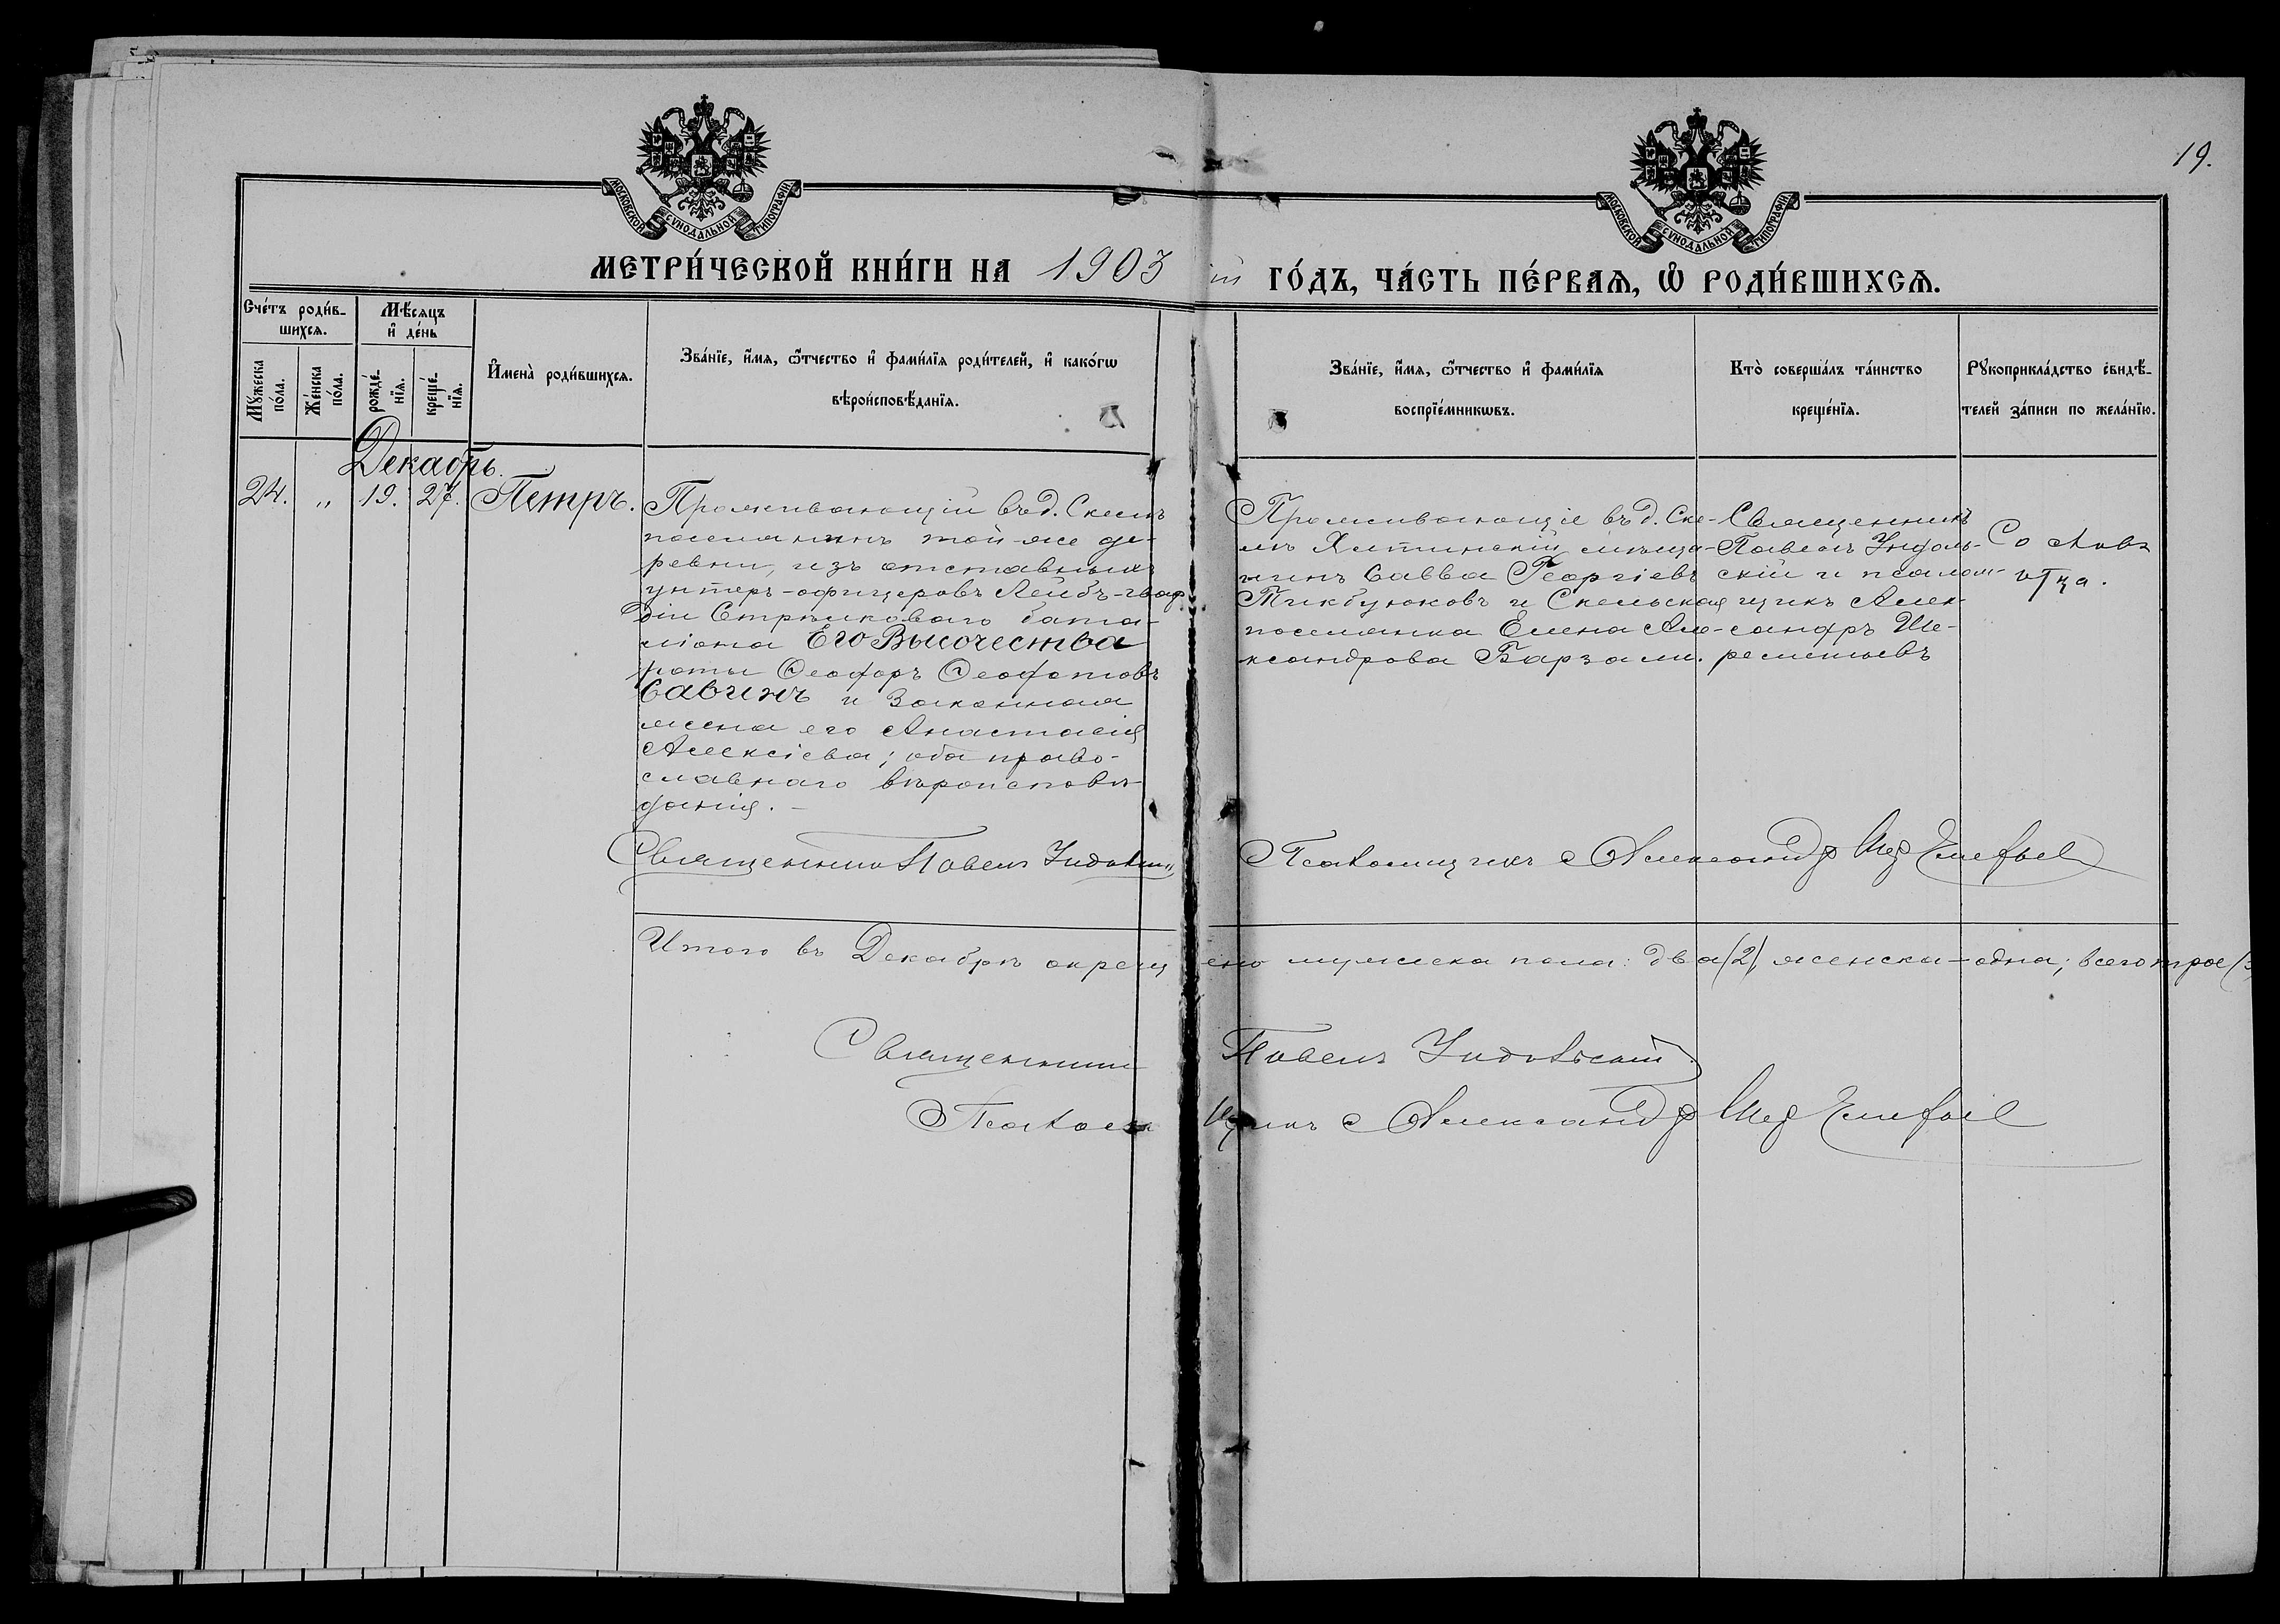 5
МОСКОВСКОЙ СѴНОДАЛЬНОЙ ТИПОГРАФІИ
МОСКОВСКОЙ СѴНОДАЛЬНОЙ ТИПОГРАФІИ
19.
МЕТРИ́ЧЕСКОЙ КНИ́ГИ НА 1903 ій ГО́ДЪ, ЧА́СТЬ ПЕ́РВАѦ, Ѽ РОДИ́ВШИХСѦ.
Сче́тъ роди́в-
шихся.
Мѣ́сяцъ
и҆ де́нь
Мꙋ́жеска
по́ла.
Же́нска
по́ла.
рожде́-
нїя.
креще́-
нїя.
И҆мена̀ роди́вшихся.
Зва́нїе, и҆́мя, ѻ҆́тчество и҆ фами́лїя роди́телей, и҆ како́гѡ
вѣроисповѣ́данїя.
Зва́нїе, и҆́мя, ѻ҆́тчество и҆ фами́лїя
воспрїе́мникѡвъ.
Кто̀ соверша́лъ та́инство
креще́нїя.
Рꙋкоприкла́дство свидѣ́-
телей за́писи по жела́нїю.
Декабрь.
24. „ 19. 27. Петръ.
Проживающій въ д. Скели
поселянинъ той-же де-
ревни, изъ отставныхъ
унтеръ-офицеровъ Лейбъ-гвар-
діи Стрѣлковаго бата-
ліона Его Высочества
роты Ѳеодоръ Ѳеодотовъ
Савинъ и законная
жена его Анастасія
Алексіева; оба право-
славнаго вѣроисповѣ-
данія. –
Проживающіе въ д. Ске-
ли Ялтинскій мѣща-
нинъ Савва Георгіевъ
Тикбуюковъ и Скельская
поселянка Елена Але-
ксандрова Барзали.
Священникъ
Павелъ Индоль-
скій и псалом-
щикъ Алек-
сандръ Ше-
реметьевъ
Со словъ
отца.
Священникъ Павелъ Индольскій
Псаломщикъ Александръ Шереметьевъ
Итого въ Декабрѣ окрещено мужеска пола: два (2), женска – одна; всего трое (3
Священникъ Павелъ Индольскій
Псаломщикъ Александръ Шереметьевъ